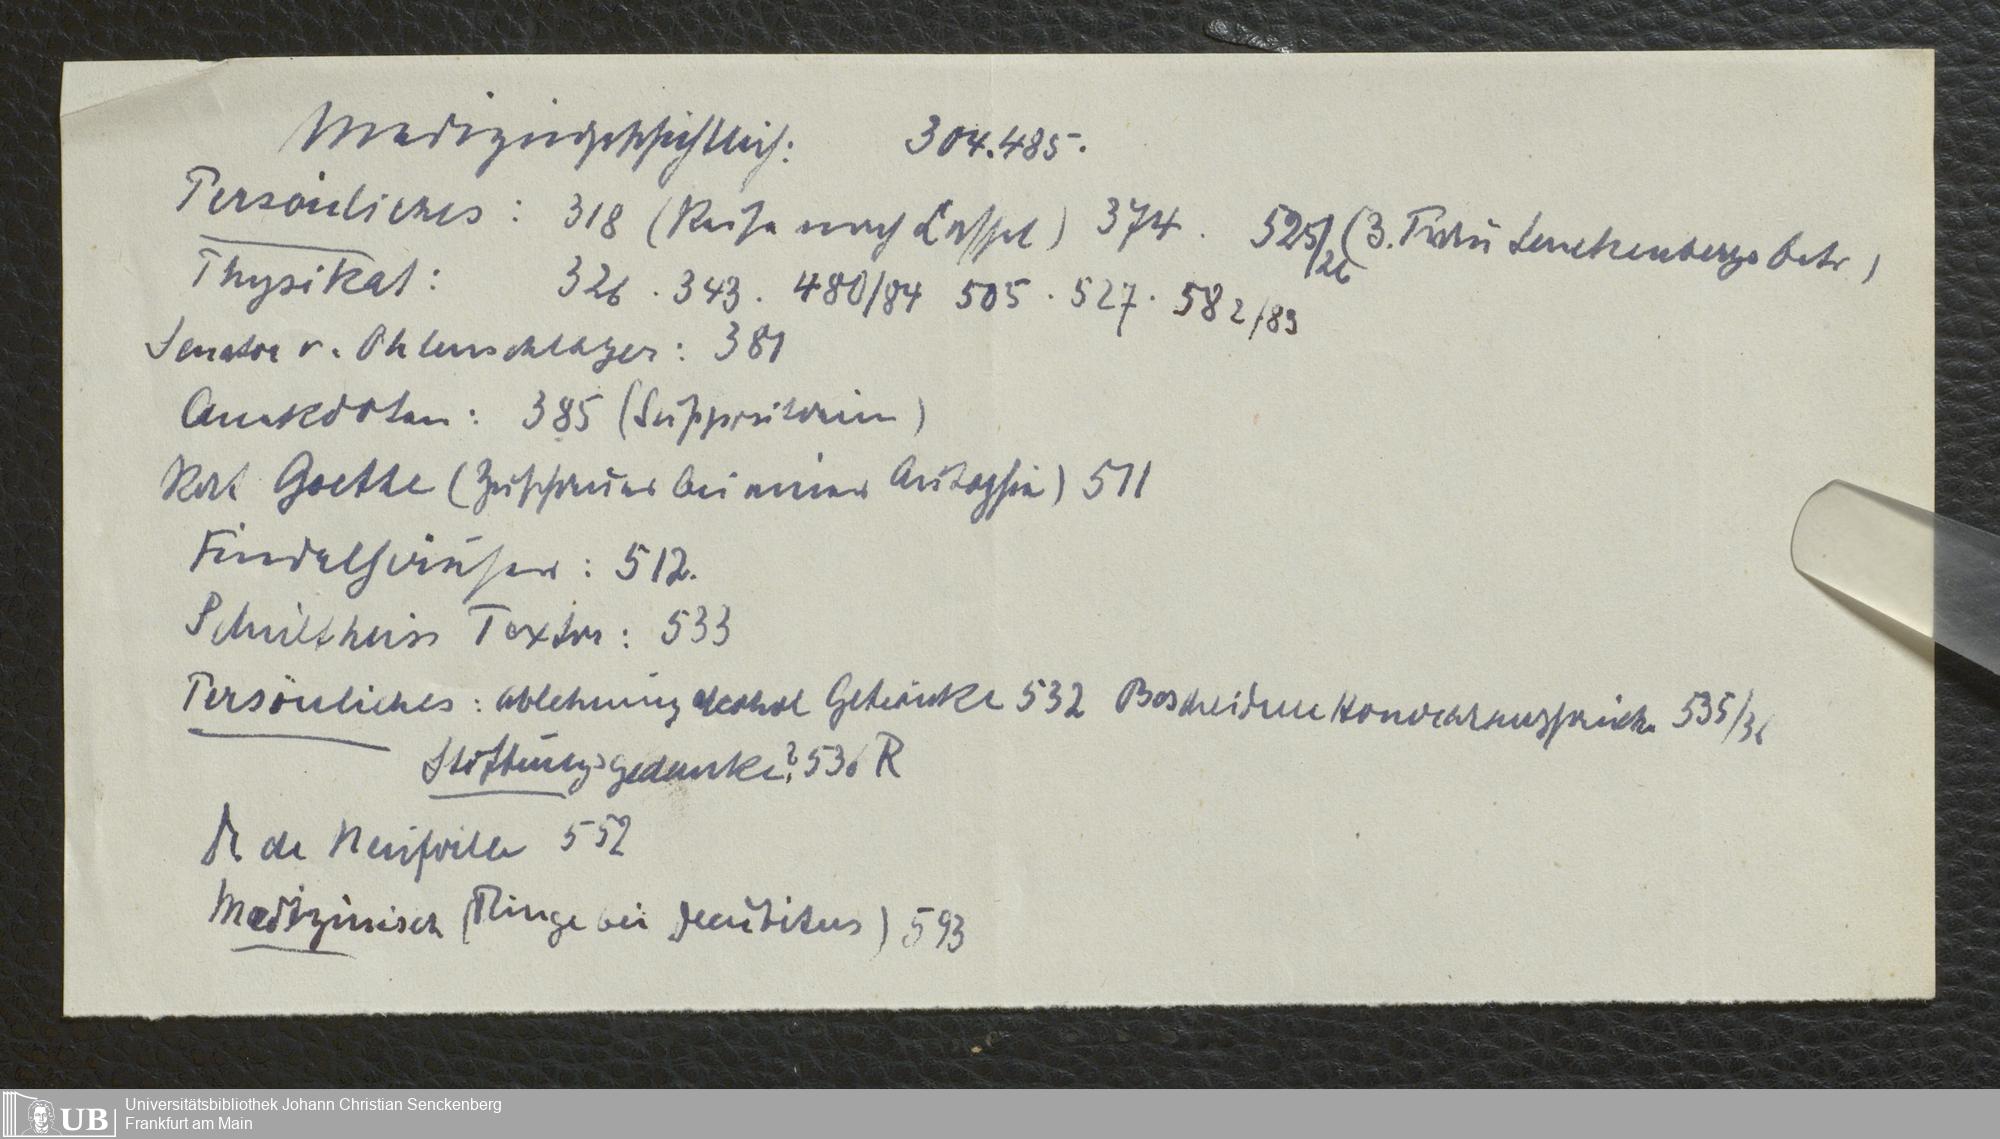 Medizingeschichtlich: 304.485.
Persönliches: 318 (Reise nach Cassel) 374. 525/26 (3. Frau Senckenbergs betr.)
Physikat: 326. 343. 480/84 505. 527. 582/83
Senator v. Ohlenschlager: 381
Anekdoten: 385 (Suppositorien)
Rat Goethe (Zuschauer bei einer Autopsie) 511
Findelhäuser: 512.
Schultheiss Textor: 533
Persönliches: Ablehnung alkohol Getränke 532 Bescheidene Honoraransprüche 535/36
Stiftungsgedanke? 536 R
Dr de Neufville 552
Medizinisch (Ringe bei Decubitus) 593
UB
Universitätsbibliothek Johann Christian Senckenberg
Frankfurt am Main